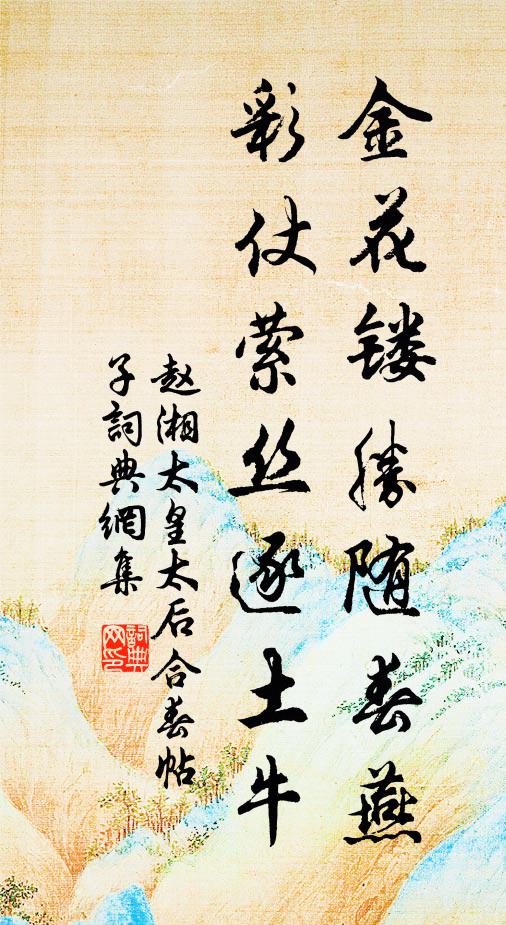 金花镂胜随春燕
彩仗萦丝逐土牛
赵湘太皇太后合春帖
子詞典網集
詞典网印